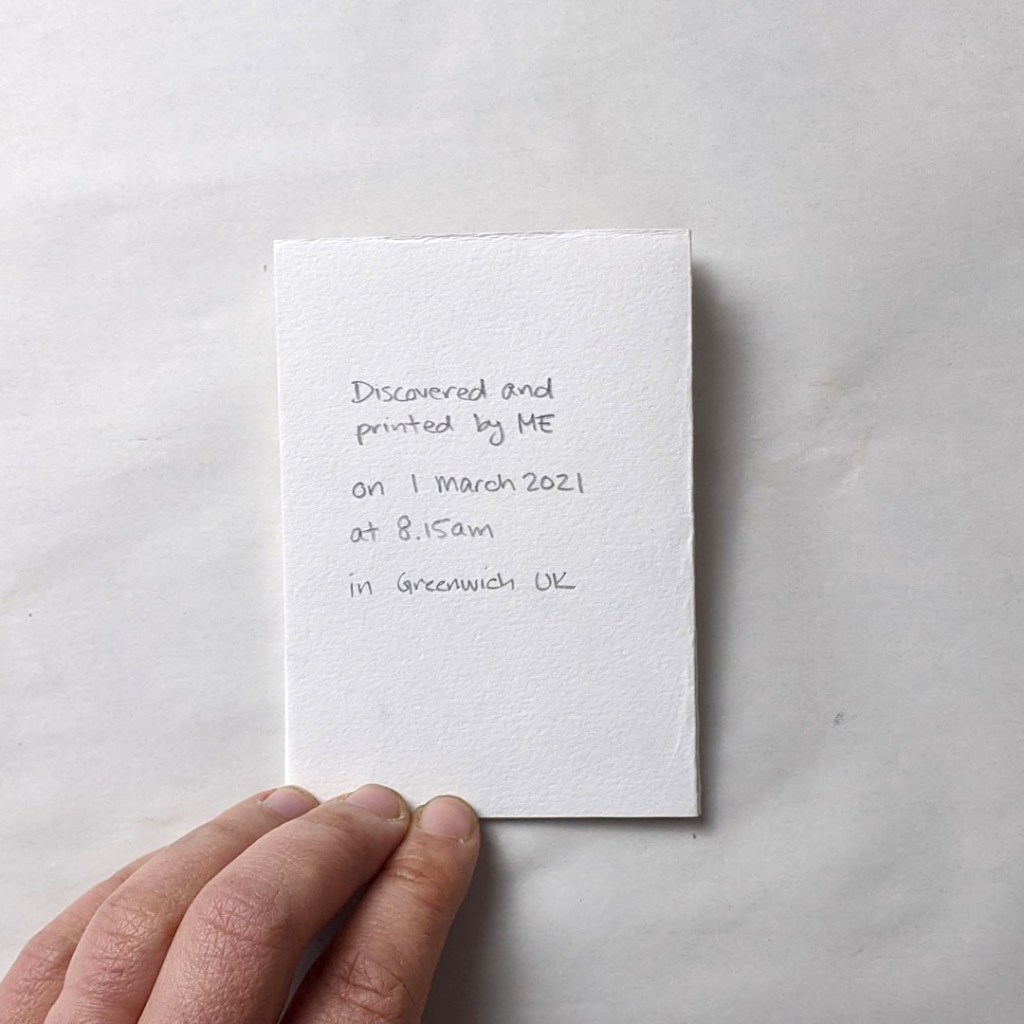 Discovered and
printed by ME
on 1 march 2021
at 8.15am
in Greenwich UK